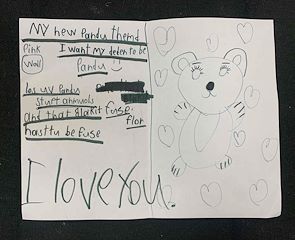 My new Pandu themd
Pink
I want my deden to be
Wall
Pandu
los uv Pandu
stuft annuols
and that blakit fuse.
flor
hastu be fuse
I love You.